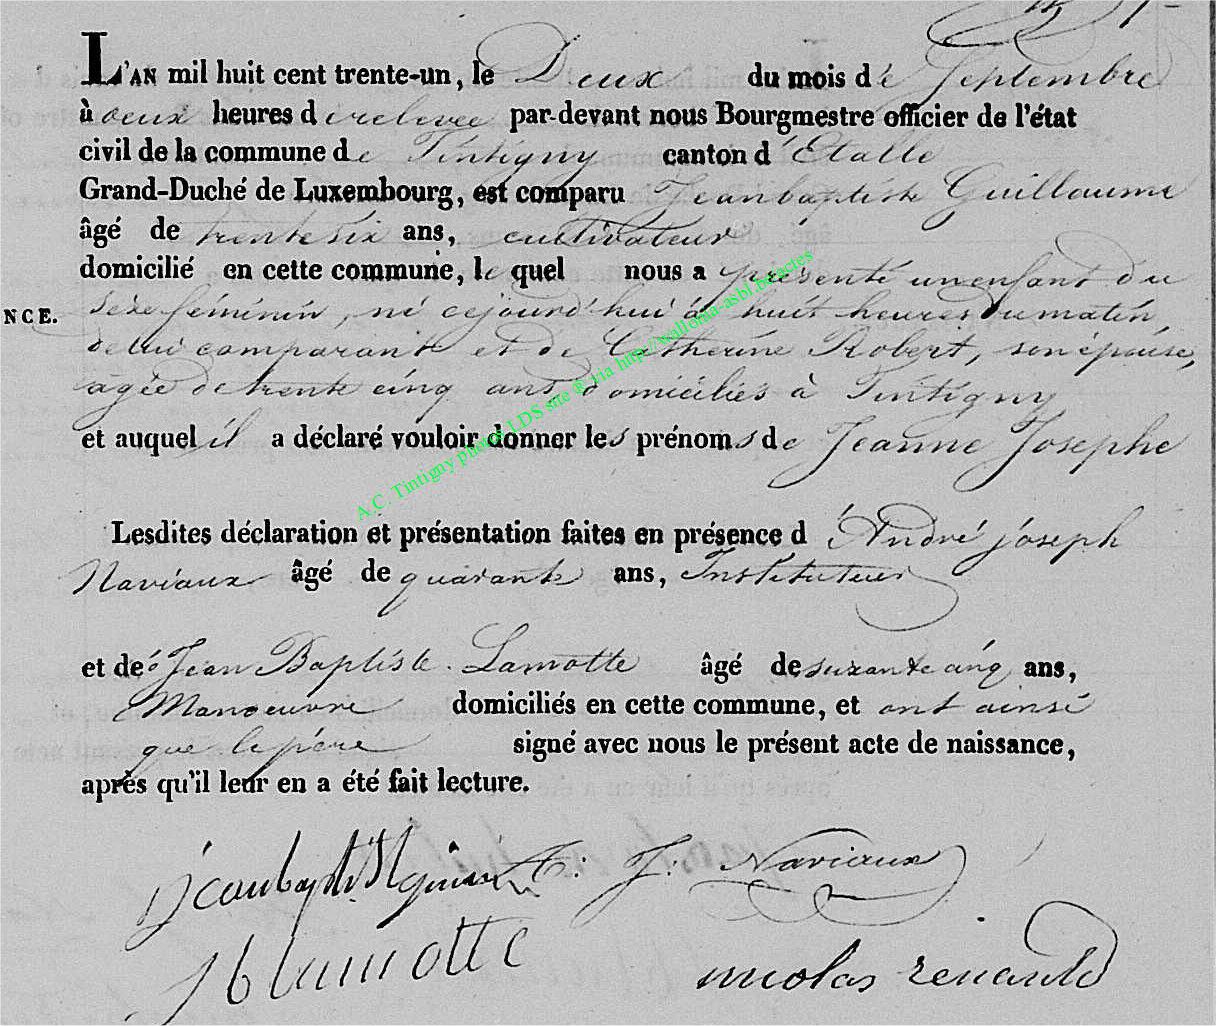 L'AN mil huit cent trente-un, le Deux du mois de Septembre
à deux heures de relevée par-devant nous Bourgmestre officier de l'état
civil de la commune de Tintigny canton d'Etalle
Grand-Duché de Luxembourg, est comparu Jeanbaptiste Guillaume
âgé de trente six ans, cultivateur
domicilié en cette commune, le quel nous a présenté un enfant du
NCE. sexe féminin, né cejourd'hui à huit heures du matin
de lui comparant et de Catherine Robert, son épouse,
agée de trente cinq ans, domiciliés à Tintigny
et auquel il a déclaré vouloir donner les prénoms de Jeanne Josephe
Lesdites déclaration et présentation faites en présence d'André joseph
Naviaux âgé de quarante ans, Instituteur
et de Jean Baptiste Lamotte âgé de suixante cinq ans,
Manoeuvre domiciliés en cette commune, et ont ainsi
que le père signé avec nous le présent acte de naissance,
après qu'il leur en a été fait lecture.
J: Naviaux
Jb lamotte
nicolas renauld
A.C. Tintigny photos LDS site ® via http://wallonia-asbl.be/actes